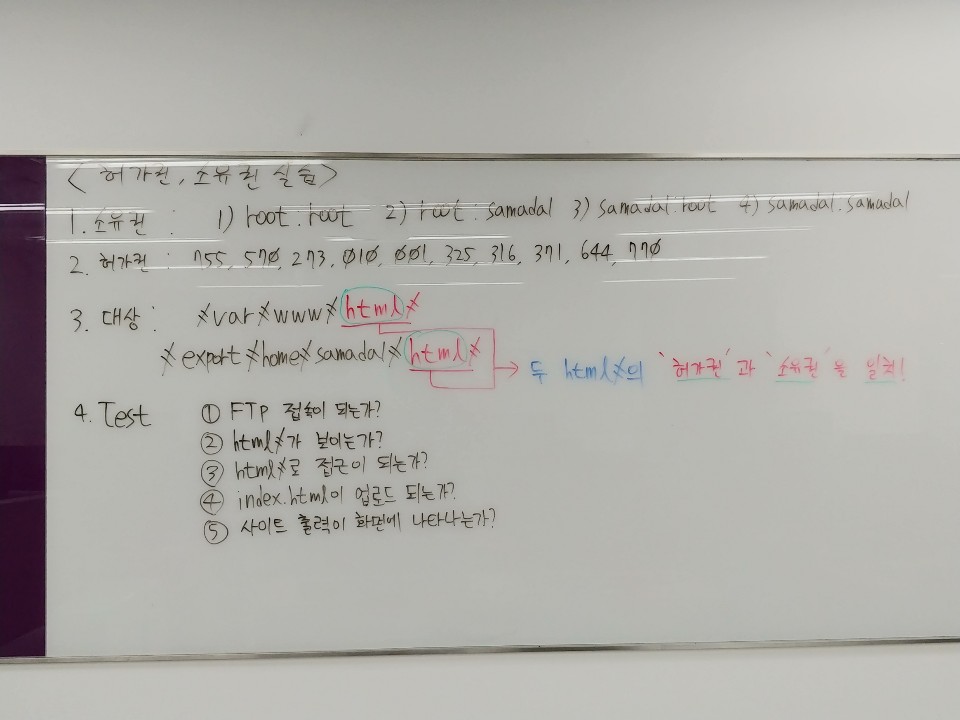 <허가권, 소유권 실습>
1. 소유권 : 1) root.root 2) root.samadal 3) samadal.root 4) samadal.samadal
2. 허가권 : 755, 570, 273, 010, 001, 325, 316, 371, 644, 770
3. 대상 : /var/www/html/
/export/home/samadal/html/
→ 두 html/의 '허가권'과 '소유권'을 일치!
4. Test ① FTP 접속이 되는가?
② html/가 보이는가?
③ html/로 접근이 되는가?
④ index.html이 업로드 되는가?
⑤ 사이트 출력이 화면에 나타나는가?